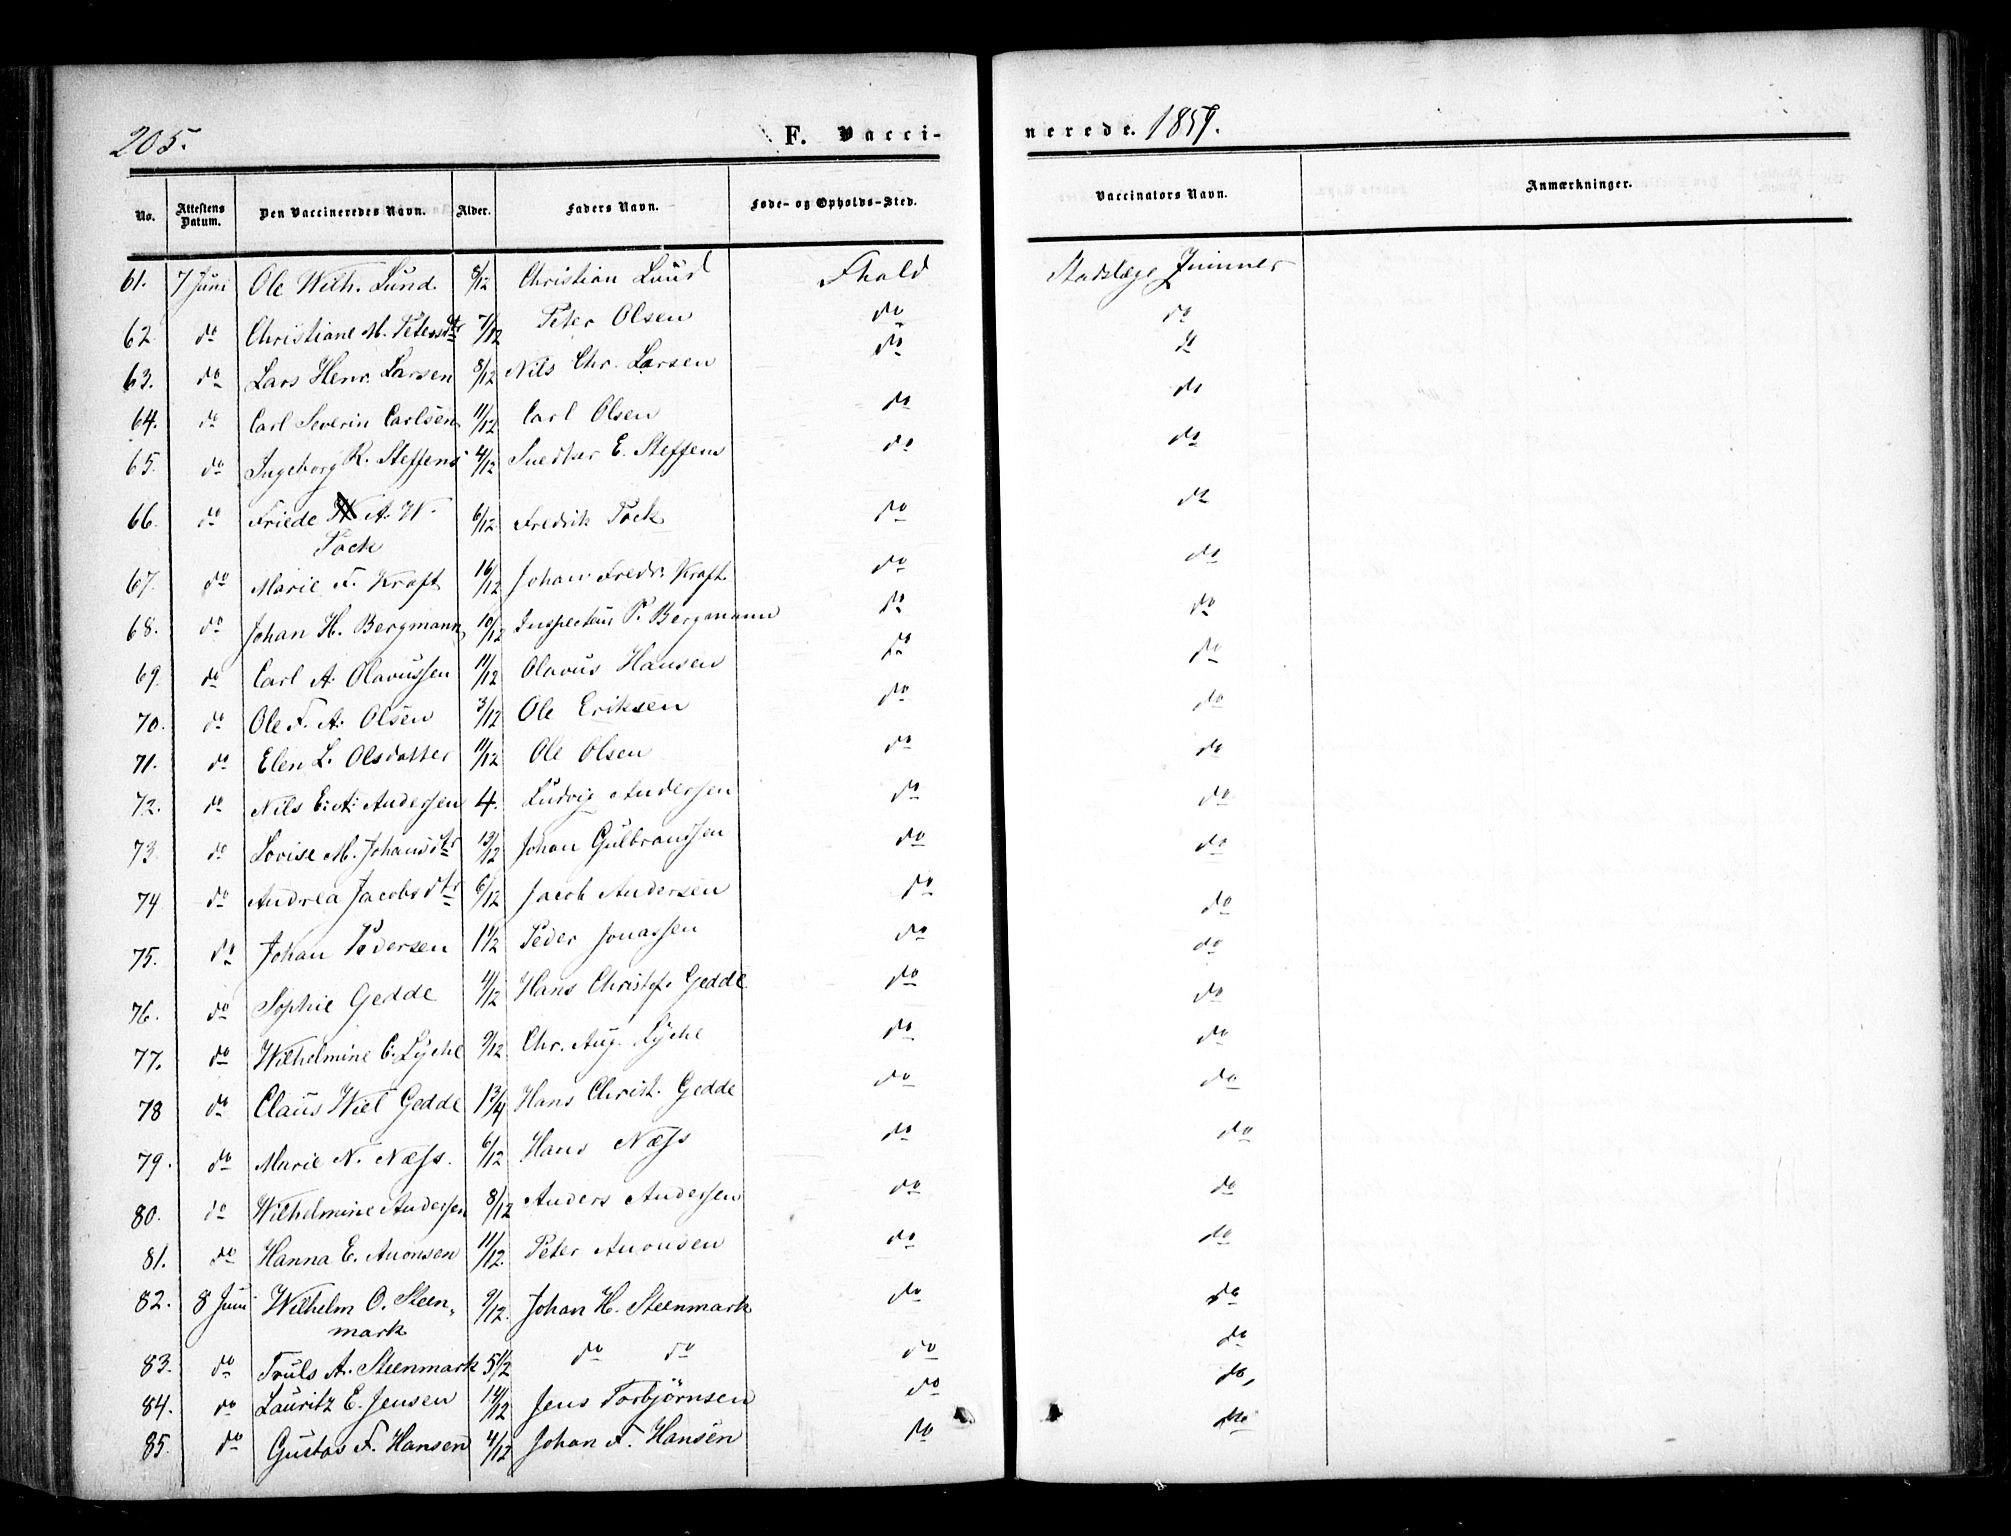 205.
F. Vacci-
nerede. 1859.
No. Attestens Datum. Den Vaccineredes Navn. Alder. Faders Navn. Føde- og Opholds-Sted. Vaccinators Navn. Anmærkninger.
61. 7 Juni Ole Wilh. Lund. 8/12 Christian Lund Fhald Stadslæge
62. do Christiane M. Petersdtr 7/12 Peter Olsen do do
63. do Lars Henr. Larsen 8/12 Nils Chr. Larsen do do
64. do Carl Severin Carlsen 11/12 Carl Olsen do do
65. do Ingeborg R. Steffens 4/12 E. Steffens do do
66. do Friede A. W. 6/12 Fredrik Tock do do
Tock
67. do Marie F. Kraft 16/12 Johan Fredr. Kraft do do
68. do Johan H. Bergmann 10/12 Inspecteur P. Bergmann do do
69. do Carl A. Olavussen 11/12 Olavus Hansen do do
70. do Ole F. A. Olsen 3/12 Ole Eriksen do do
71. do Elen L. Olsdatter 11/12 Ole Olsen do do
72. do Nils E. A. Andersen 4. Ludvig Andersen do do
73. do Lovise M. Johansdtr 13/12 Johan Gulbranssen do do
74 do Andrea Jacobsdtr 6/12 Jacob Andersen do do
75. do Johan Pedersen 1 1/2 Peder Jonassen do do
76. do Sophie Gedde 4/12 Hans Christof. Gedde do do
77. do Wilhelmine C. Lyche 9/12 Chr. Aug. Lyche do do
78 do Claus Wiel Gedde 1 3/4 Hans Christ. Gedde do do
79. do Marie N. Næss. 6/12 Hans Næss do do
80. do Wilhelmine Andersen 8/12 Anders Andersen do do
81. do Hanna E. Anonsen 11/12 Peter Anonsen do do
82. 8 Juni Wilhelm O. Steen- 9/12 Johan H. Steenmark do do
mark
83. do Truls A. Steenmark 5 1/2 do do do do
84. do Lauritz E. Jensen 14/12 Jens Torbjørnsen do do
85. do Gustav F. Hansen 4/12 Johan F. Hansen do do